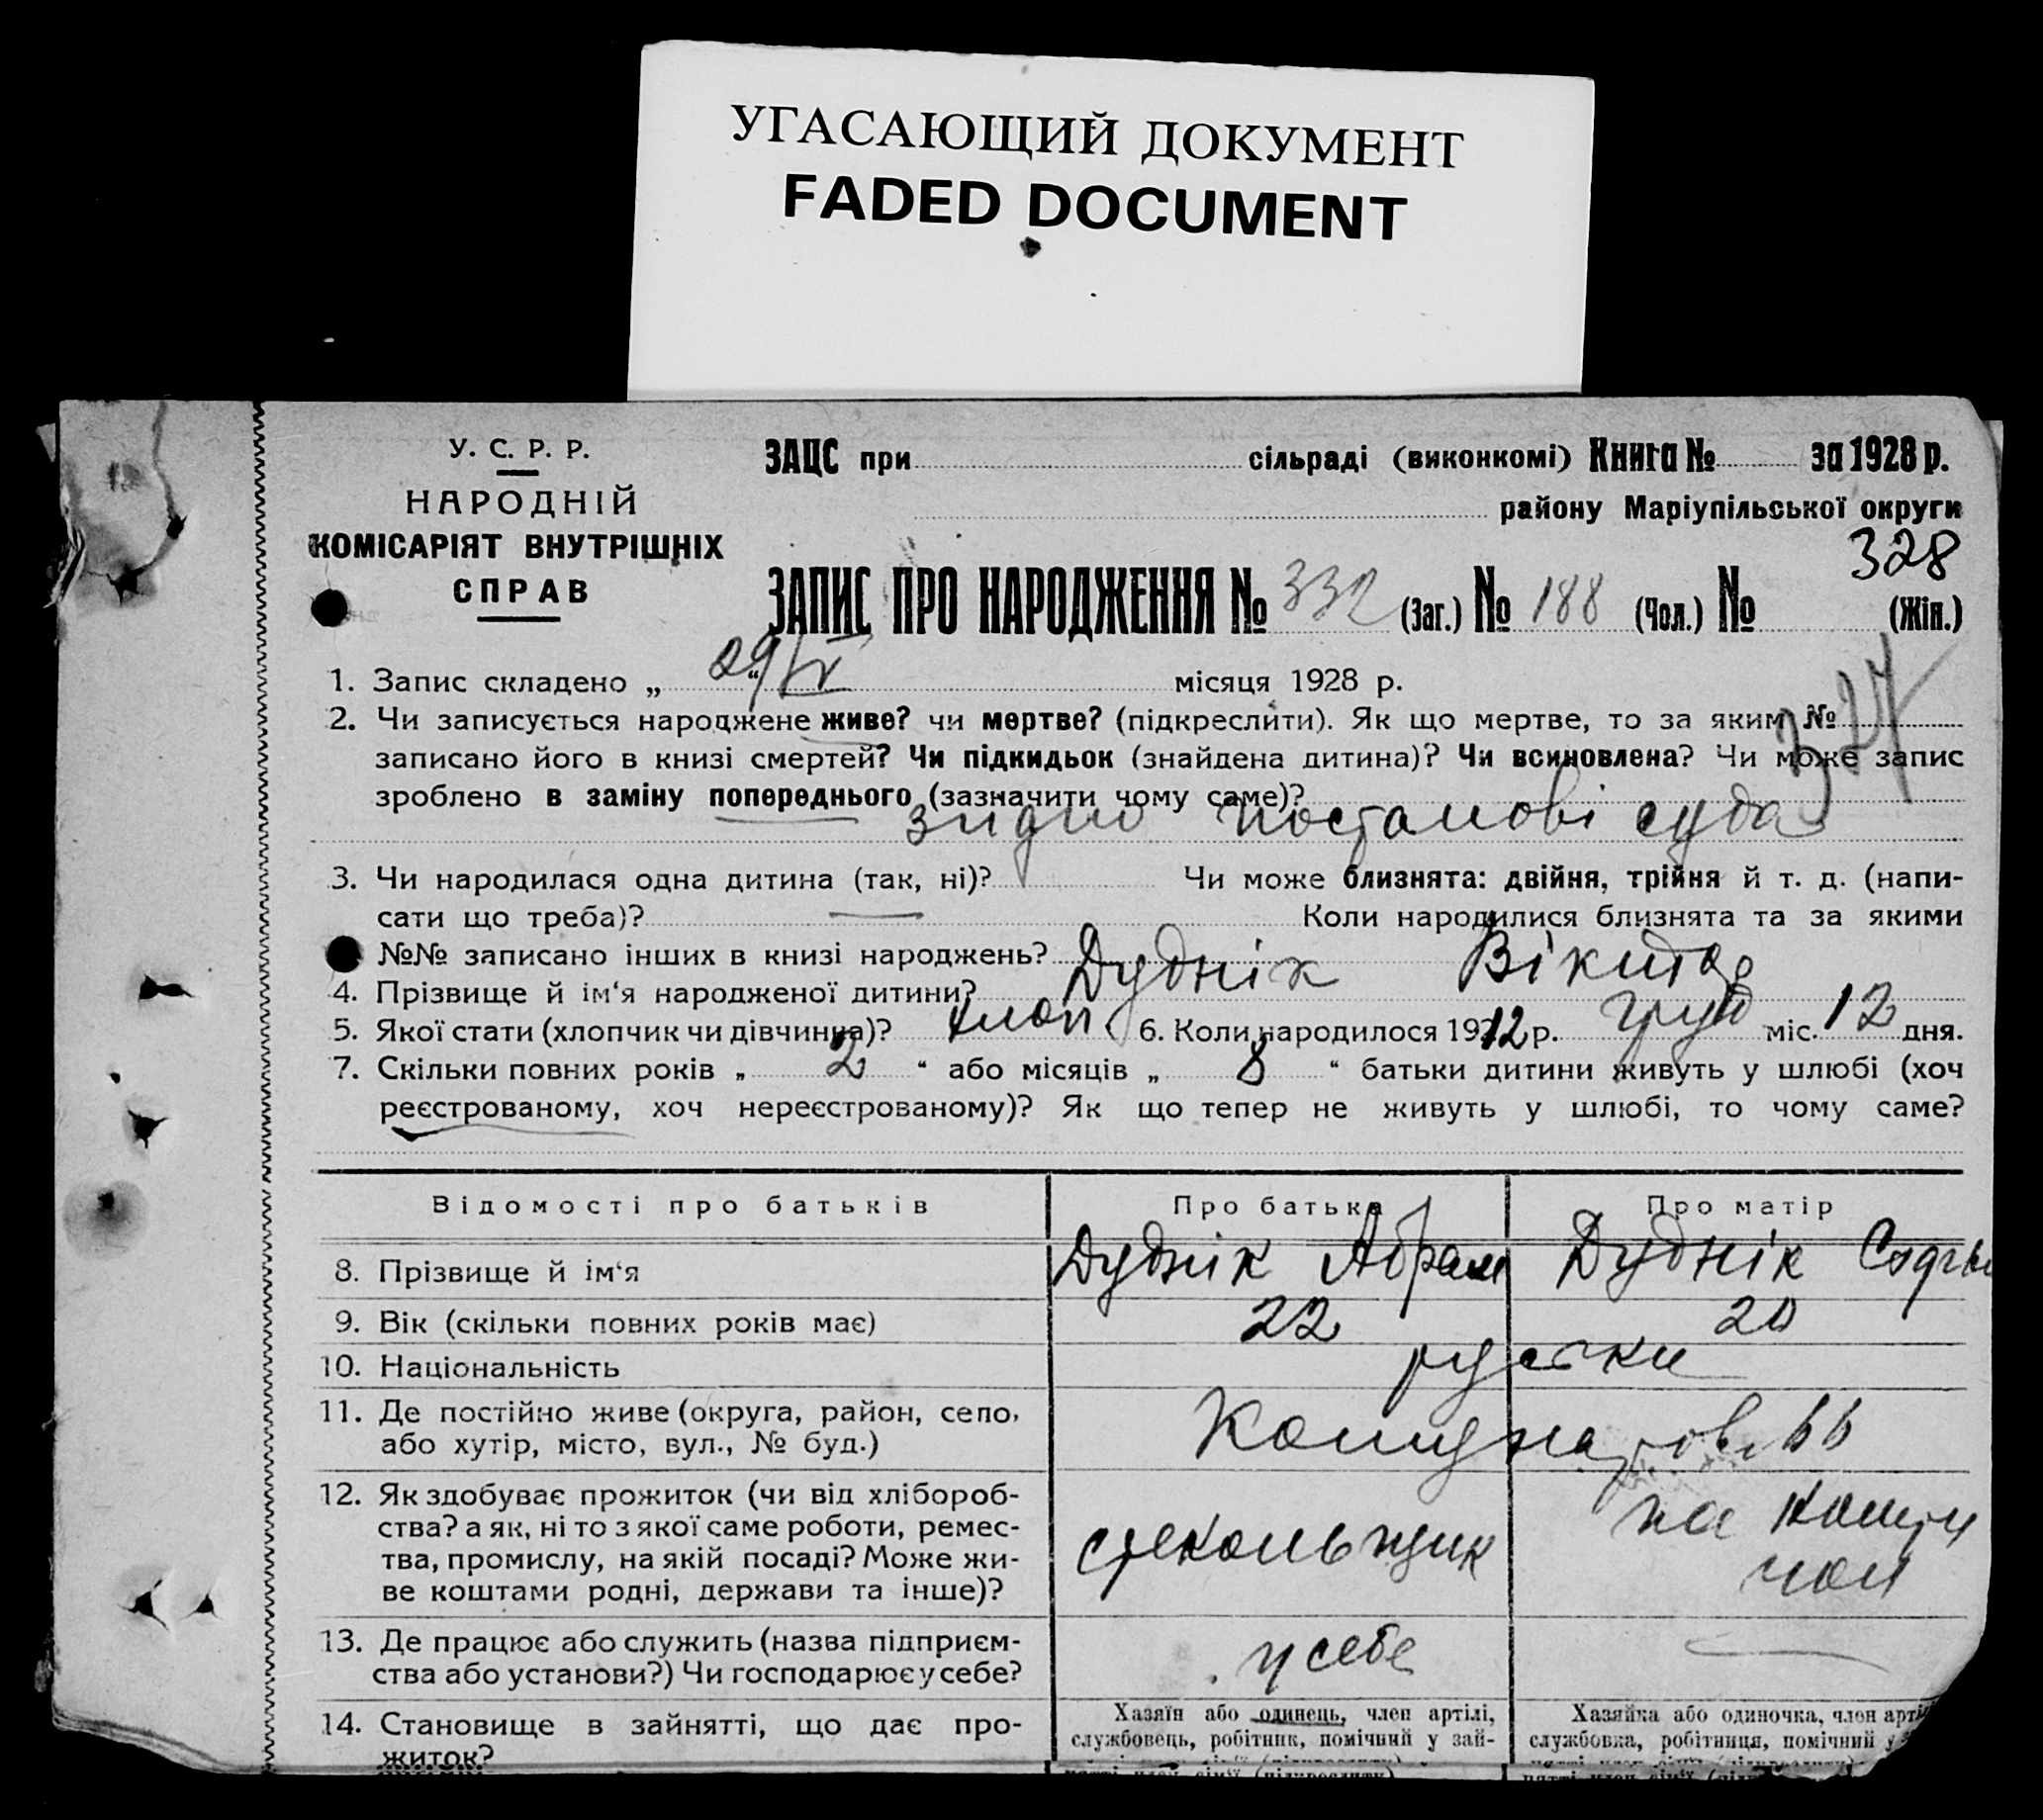 УГАСАЮЩИЙ ДОКУМЕНТ
FADED DOCUMENT
У. С. Р. Р.
НАРОДНІЙ
КОМІСАРІЯТ ВНУТРІШНІХ
СПРАВ
ЗАЦС при сільраді (виконкомі) Книга № за 1928 р.
району Маріупільської округи
328
ЗАПИС ПРО НАРОДЖЕННЯ № 332 (Заг.) № 188 (Чол.) № (Жін.)
1. Запис складено „ 29/IV “ місяця 1928 р.
327
2. Чи записується народжене живе? чи мертве? (підкреслити). Як що мертве, то за яким №
записано його в книзі смертей? Чи підкидьок (знайдена дитина)? Чи всиновлена? Чи може запис
зроблено в заміну попереднього (зазначити чому саме)?
постанові суда
3. Чи народилася одна дитина (так, ні)? Чи може близнята: двійня, трійня й т. д. (напи-
сати що треба)? — Коли народилися близнята та за якими
№№ записано інших в книзі народжень?
4. Прізвище й ім‘я народженої дитини? Дуднік
5. Якої стати (хлопчик чи дівчинка)? хлоп. 6. Коли народилося 1912 р. груд міс. 12 дня.
7. Скільки повних років „ 2 “ або місяців „ 8 “ батьки дитини живуть у шлюбі (хоч
реєстрованому, хоч нереєстрованому)? Як що тепер не живуть у шлюбі, то чому саме?
Відомості про батьків Про батька Про матір
8. Прізвище й ім‘я Дуднік Абрам Дуднік
9. Вік (скільки повних років має) 22 20
10. Національність руські
11. Де постійно живе (округа, район, село,
або хутір, місто, вул., № буд.)
66
12. Як здобуває прожиток (чи від хлібороб-
ства? а як, ні то з якої саме роботи, ремес-
тва, промислу, на якій посаді? Може жи-
ве коштами родні, держави та інше)?
стекольщик
на кошти
чол
13. Де працює або служить (назва підприєм-
ства або установи?) Чи господарює у себе?
у себе
—
14. Становище в зайнятті, що дає про-
житок?
Хазяїн або одинець, член артілі,
службовець, робітник, помічний у зай-
Хазяйка або одиночка, член арті
службовка, робітниця, помічний у